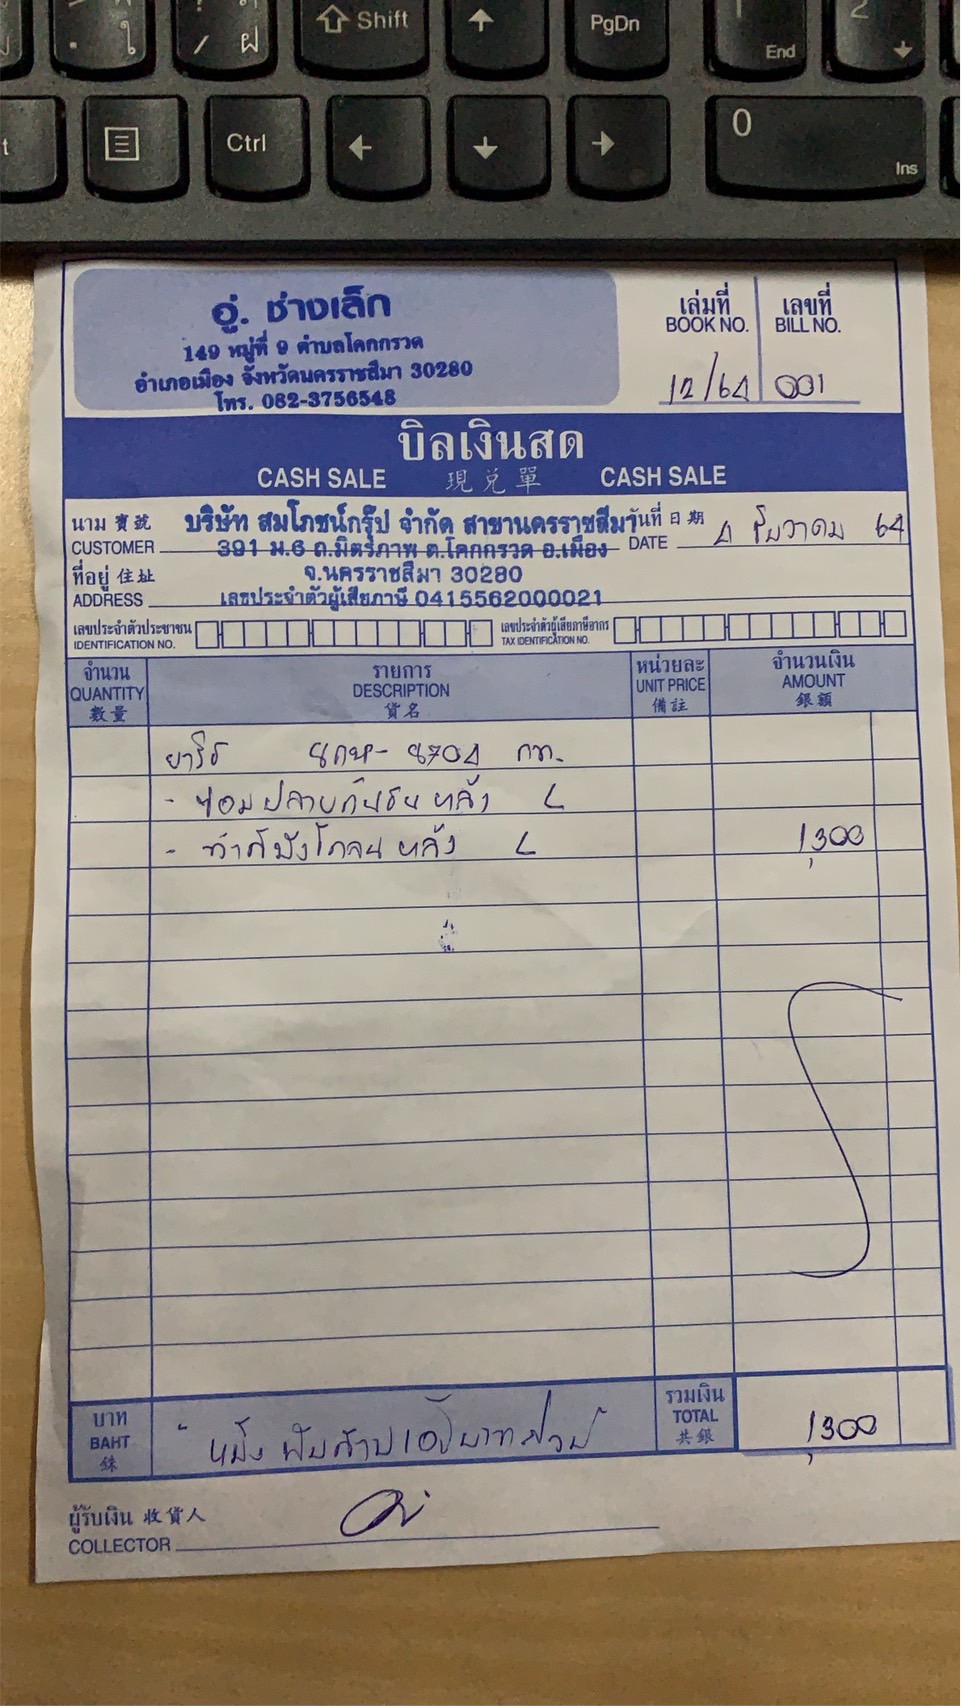 Shift
PgDn
1
End
2
Ctrl
0
Ins
อู่. ช่างเล็ก
149 หมู่ที่ 9 ตำบลโคกกรวด
อำเภอเมือง จังหวัดนครราชสีมา 30280
โทร. 082-3756548
เล่มที่ เลขที่
BOOK NO. BILL NO.
12/64 001
บิลเงินสด
CASH SALE 現兌單 CASH SALE
นาม 寳號 บริษัท สมโภชน์กรุ๊ป จำกัด สาขานครราชสีมา วันที่ 日期
CUSTOMER 391 ม.6 ถ.มิตรภาพ ต.โคกกรวด อ.เมือง DATE 4 ธันวาคม 64
ที่อยู่ 住址 จ.นครราชสีมา 30280
ADDRESS เลขประจำตัวผู้เสียภาษี 0415562000021
เลขประจำตัวประชาชน เลขประจำตัวผู้เสียภาษีอากร
IDENTIFICATION NO. TAX IDENTIFICATION NO.
จำนวน รายการ หน่วยละ จำนวนเงิน
QUANTITY DESCRIPTION UNIT PRICE AMOUNT
數量 貨名 備註 銀額
ยาริส 8704 กท.
- ซ่อมปลายกันชนหลัง L
- ทำสีบังโคลนหลัง L 1,300
บาท รวมเงิน
BAHT หนึ่งพันสามร้อยบาทถ้วน TOTAL 1,300
銖 共銀
ผู้รับเงิน 收貨人
COLLECTOR